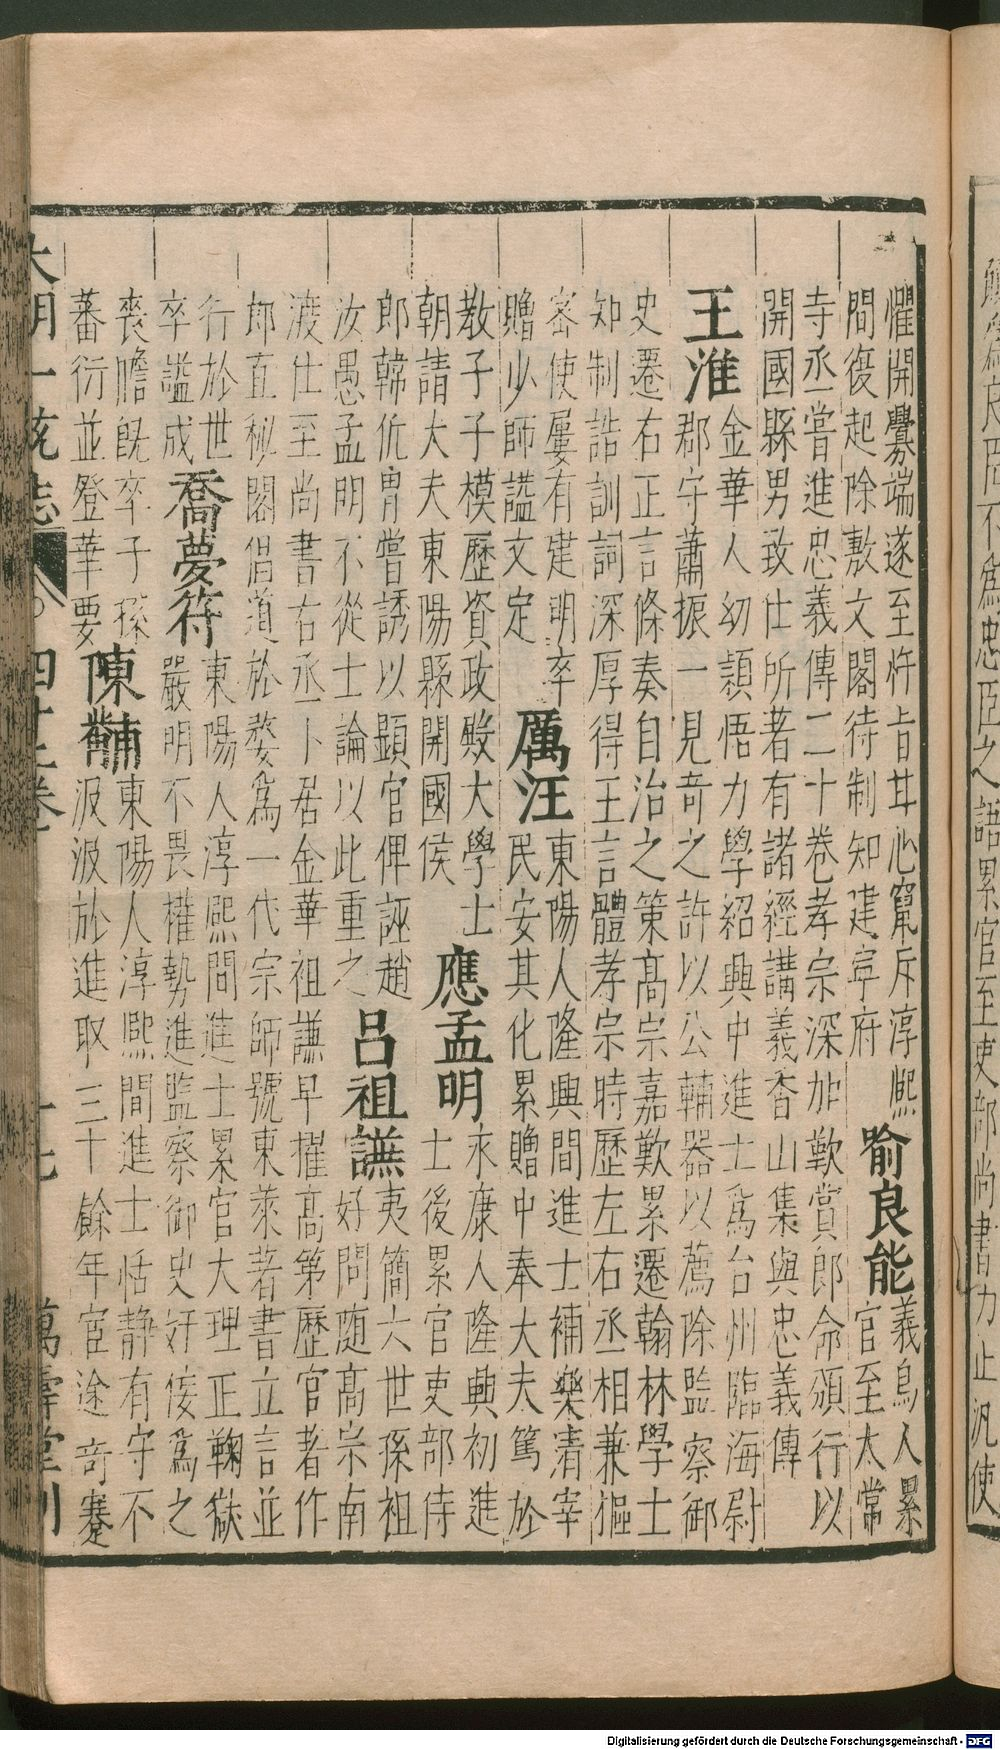 懼開釁端遂至忤旨甘心竄斥淳熈
間復起除敷文閣待制知建寧府
喻良能
義烏人累
官至太常
寺丞嘗進忠義傳二十卷孝宗深加歎賞郎命頒行以
開國縣男致仕所著有諸經講義香山集與忠義傳
王淮
金華人幼頴悟力學紹興中進士爲台州臨海尉
郡守蕭振一見竒之許以公輔器以薦除監察御
史遷右正言條奏自治之策髙宗嘉歎累遷翰林學士
知制誥訓詞深厚得王言體孝宗時歷左右丞相兼樞
密使屢有建明卒
贈少師謚文定
厲汪
東陽人隆興間進士補樂清宰
民安其化累贈中奉大夫篤於
教子子模歷資政殿大學士
朝請大夫東陽縣開國侯
應孟明
永康人隆興初進
士後累官吏部侍
郎韓侂胄嘗誘以顯官俾誣趙
汝愚孟明不從士論以此重之
吕祖謙
夷簡六世孫祖
好問隨髙宗南
渡仕至尚書右丞卜居金華祖謙早擢髙第歷官著作
郎直秘閣倡道於婺爲一代宗師號東萊著書立言並
行於世
卒謚成
喬夢符
東陽人淳熈間進士累官大理正鞠獄
嚴明不畏權勢進監察御史奸倿爲之
喪膽既卒子孫
蕃衍並登華要
陳黼
東陽人淳熈間進士恬静有守不
汲汲於進取三十餘年宦途竒蹇
大明一統志
四十二卷
十七
萬壽堂刊
爲忠臣之語累官至吏部尚書力止汎使
Digitalisierung gefördert durch die Deutsche Forschungsgemeinschaft - DFG